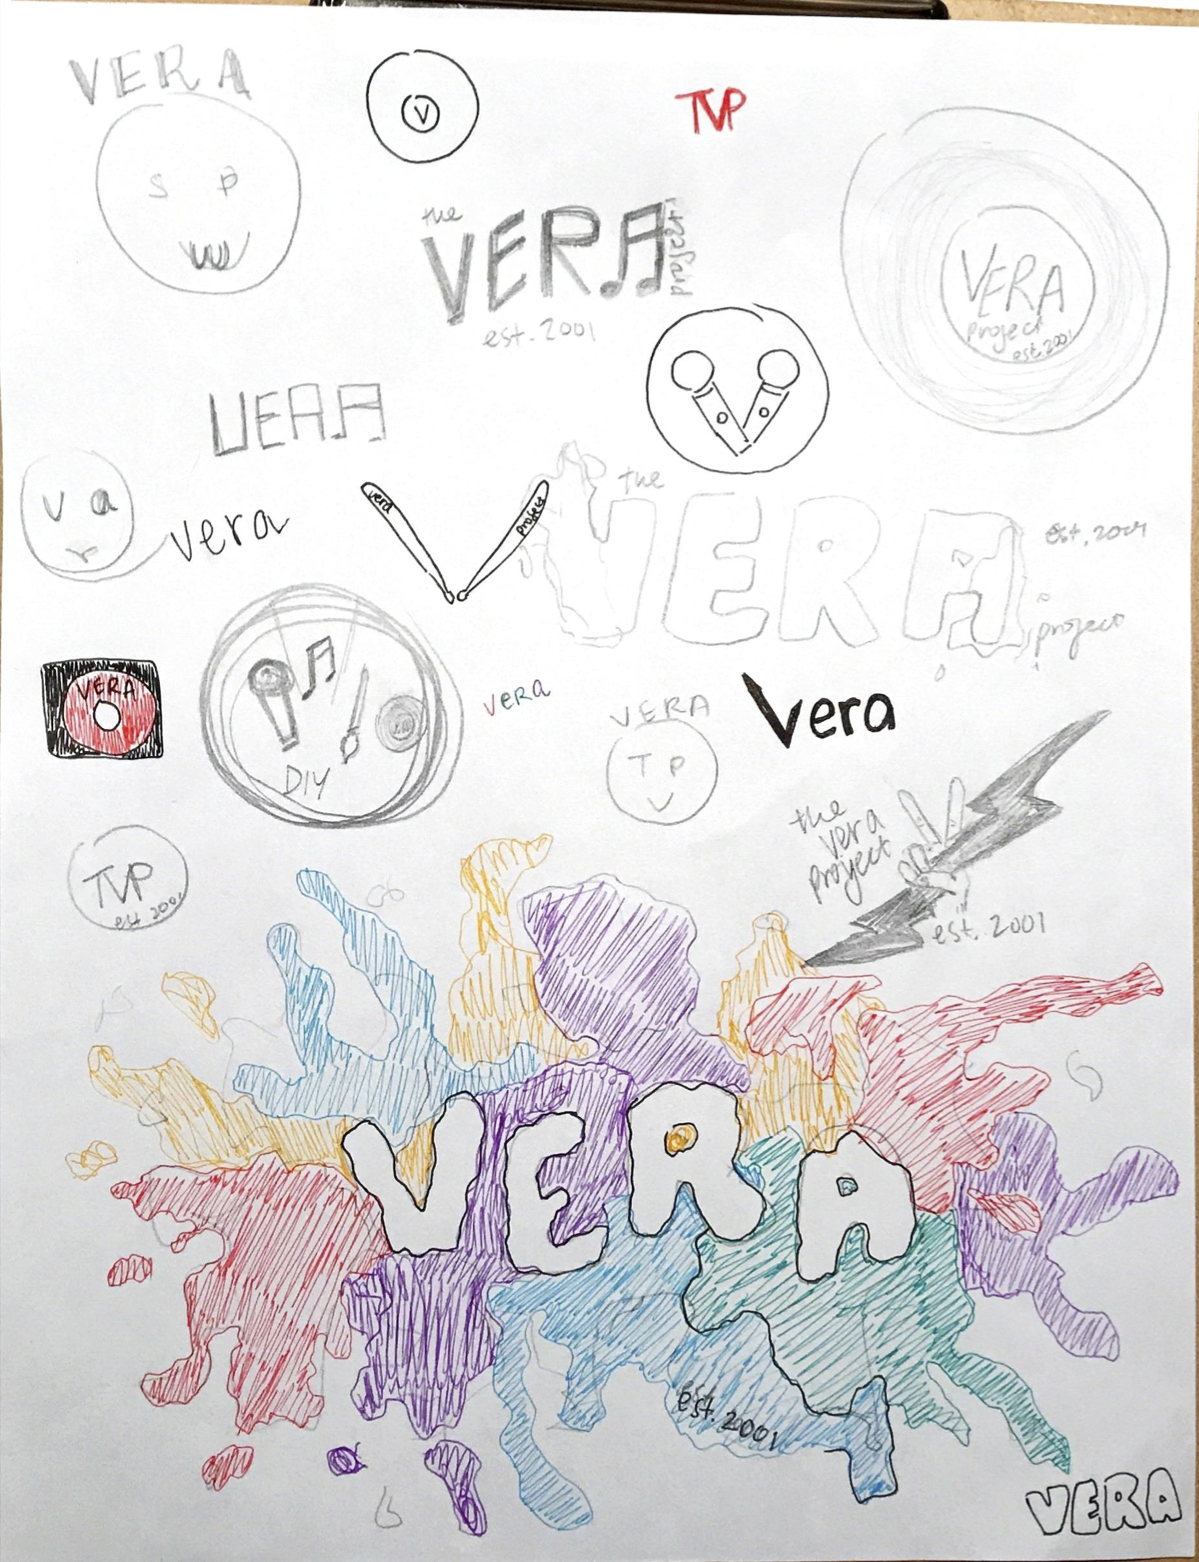 VERA
S P
V
TVP
the
VERA
project
est. 2001
VERA
project
est. 2001
VERA
V a
r
vera
vera
project
the
VERA
est. 2001
project
VERA
DIY
vera
VERA
T P
V
Vera
the
vera
project
est. 2001
TVP
est 2001
VERA
est. 2001
VERA